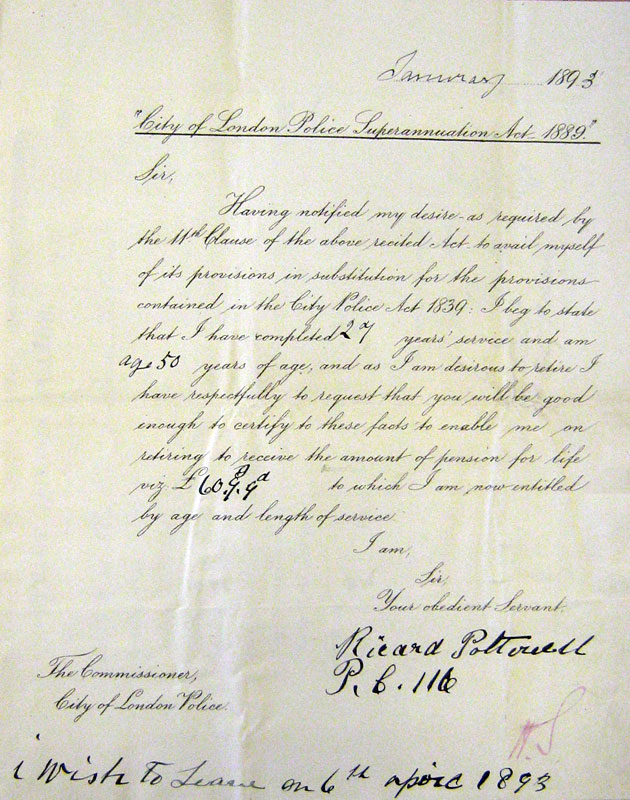 January 1893
"City of London Police Superannuation Act 1889."
Sir,
Having notified my desire as required by
the 11th Clause of the above recited Act to avail myself
of its provisions in substitution for the provisions
contained in the City Police Act 1839: I beg to state
that I have completed 27 years' service and am
age 50 years of age, and as I am desirous to retire I
have respectfully to request that you will be good
enough to certify to these facts to enable me on
retiring to receive the amount of pension for life
viz £60. 9s. 9d to which I am now entitled
by age and length of service.
I am,
Sir,
Your obedient Servant.
Ricard Pottowell
P. C. 116
The Commissioner,
City of London Police.
H.S
i Wish To Leave on 6th apric 1893